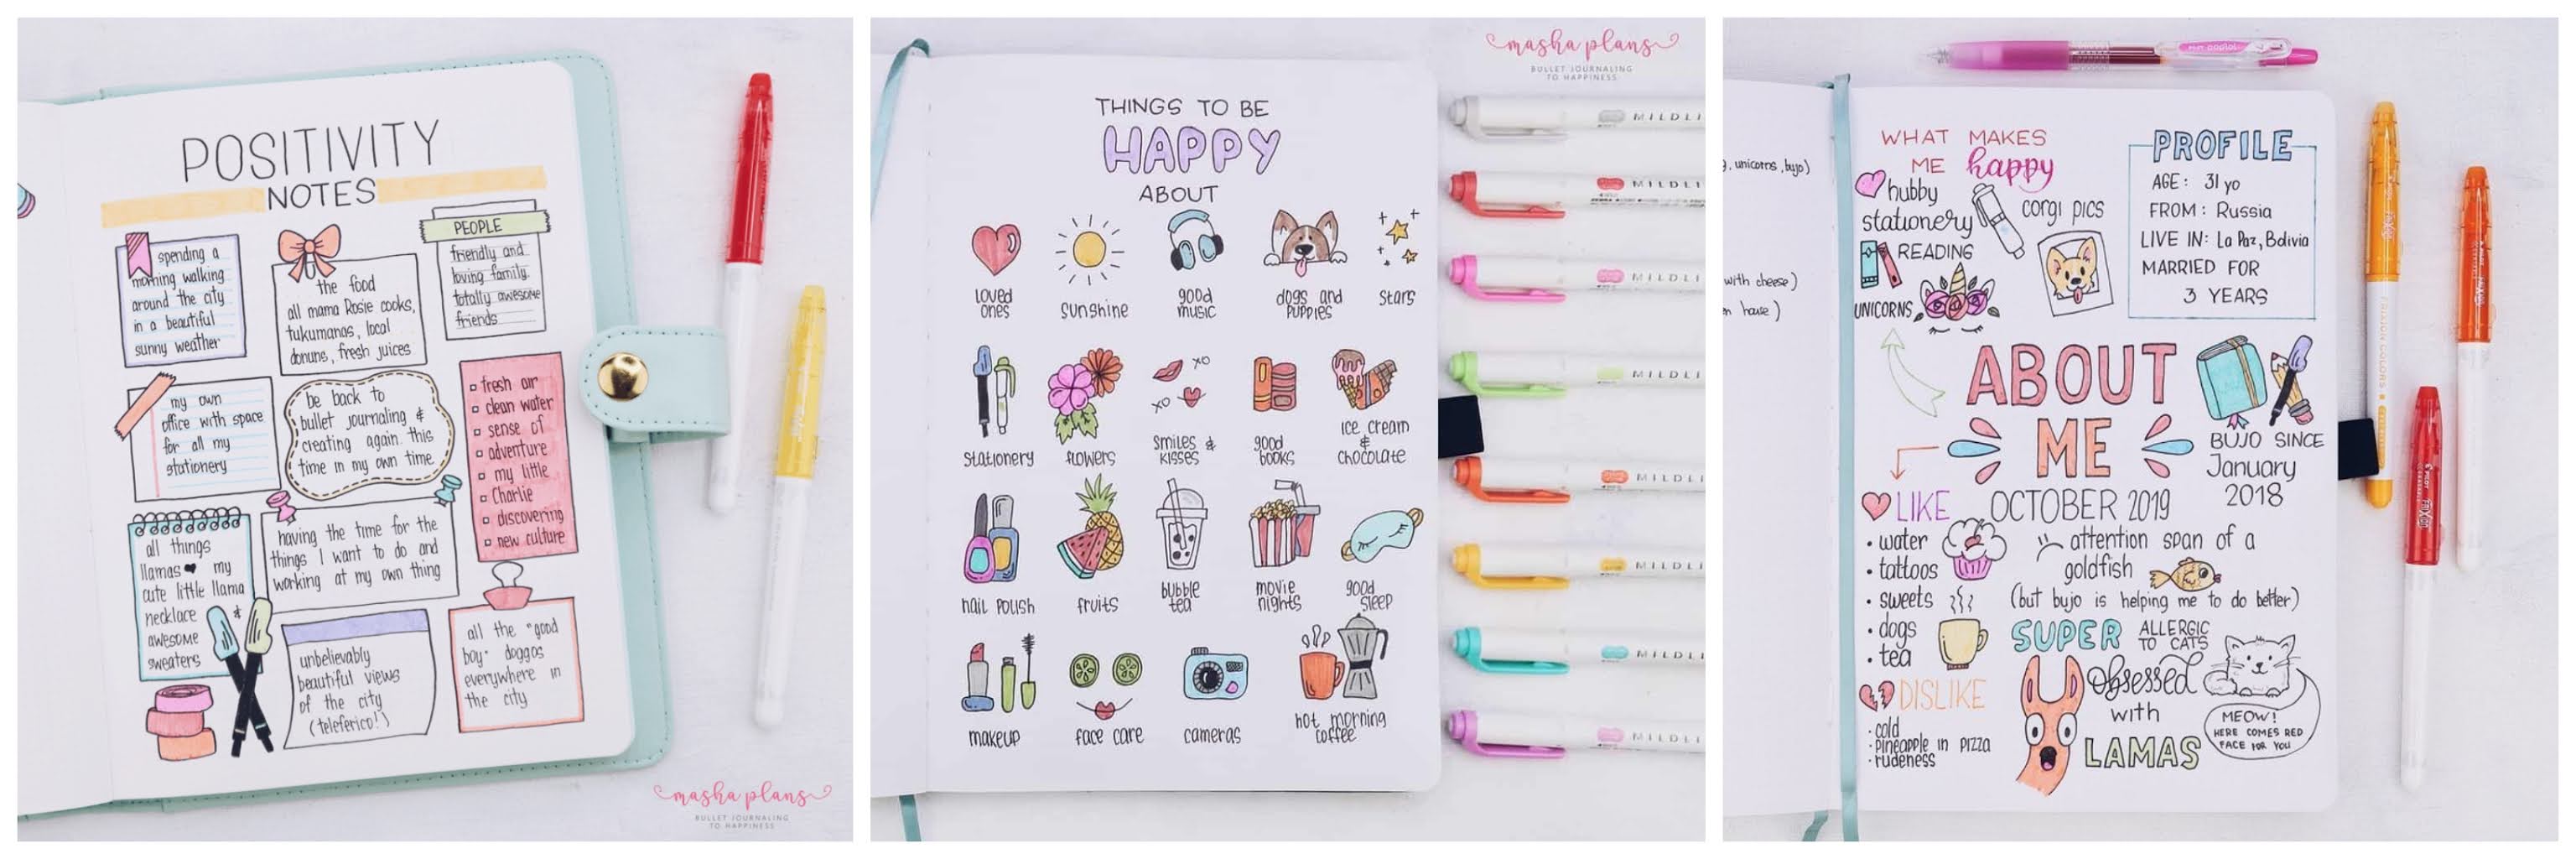 POSITIVITY
NOTES
spending a
morning walking
around the city
in a beautiful
sunny weather
the food
all mama Rosie cooks,
tukumanas, local
donuns, fresh juices
PEOPLE
friendly and
loving family.
totally awesome
friends
my own
office with space
for all my
stationery
be back to
bullet journaling &
creating again. this
time in my own time
fresh air
clean water
sense of
adventure
my little
Charlie
discovering
new culture
having the time for the
things I want to do and
working at my own thing
all things
llamas ♥ my
cute little llama
necklace &
awesome
sweaters
unbelievably
beautiful views
of the city
(teleferico!)
all the "good
boy" doggos
everywhere in
the city
masha plans
BULLET JOURNALING
TO HAPPINESS
masha plans
BULLET JOURNALING
TO HAPPINESS
THINGS TO BE
HAPPY
ABOUT
loved
ones
sunshine
good
music
dogs and
puppies
stars
xo
xo
stationery
flowers
smiles &
kisses
good
books
ice cream
&
chocolate
nail polish
fruits
bubble
tea
movie
nights
good
sleep
makeup
face care
cameras
hot morning
coffee
MILDLI
MILDLI
MILDLI
MILDLI
MILDLI
MILDLI
MILDLI
MILDLI
, unicorns, bujo)
with cheese)
house)
WHAT MAKES
ME happy
hubby
stationery
corgi pics
READING
UNICORNS
PROFILE
AGE: 31 yo
FROM: Russia
LIVE IN: La Paz, Bolivia
MARRIED FOR
3 YEARS
ABOUT
ME
BUJO SINCE
January
2018
LIKE
• water
• tattoos
• sweets
• dogs
• tea
OCTOBER 2019
attention span of a
goldfish
(but bujo is helping me to do better)
SUPER ALLERGIC
TO CATS
DISLIKE
• cold
• pineapple in pizza
• rudeness
Obsessed
with
LAMAS
MEOW!
HERE COMES RED
FACE FOR YOU